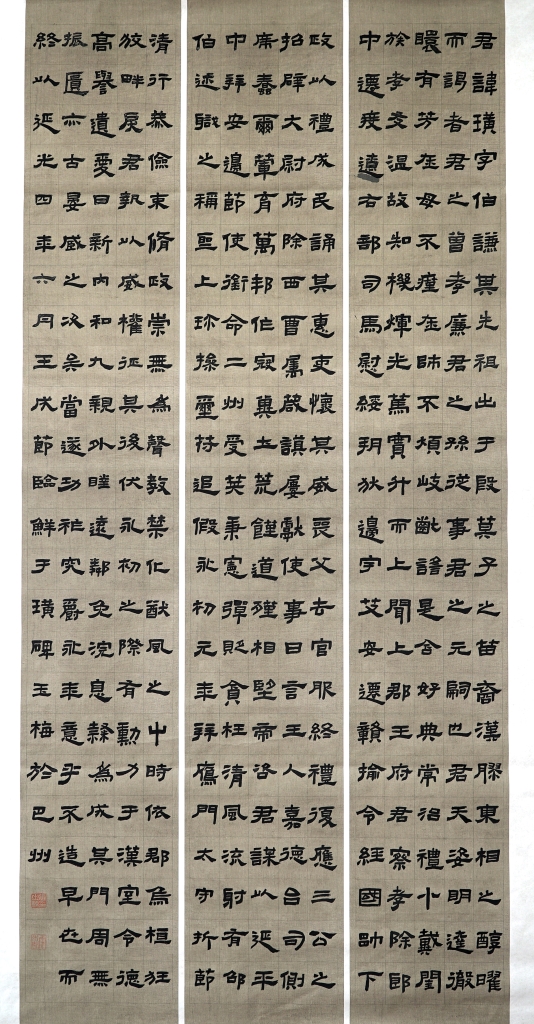 君諱璜字伯謙其先祖出于殷箕子之苗裔漢膠東相之醇曜
而謁者君之曾孝廉君之孫從事君之元嗣也君天姿明達徹
瞡有芳在母不瘽在師不煩岐嶷謠是含好典常治禮小戴閨
族孝友溫故知機煇光篤實升而上聞上郡王府君察孝除郎
中遷度遼右部司馬慰綏朔狄邊宇艾安遷贛榆令經國帥下
政以禮成民誦其惠吏懷其威喪父去官服終禮復應三公之
招辟大尉府除西曹屬啟謨屢獻使事日言王人嘉德台司側
席蠢爾葷育萬邦作寇冀土荒饉道殣相望帝咨君謀以延平
中拜安邊節使銜命二州受莢秉憲彈貶貪枉清風流射有邵
伯述職之稱圭上珍操璽符追假永初元年拜鴈門太守折節
清行恭儉束脩政崇無為聲教禁化猷風之中時依郡烏桓狂
狡畔戾君執以威權征其後伏永初之際有勳力于漢室令德
高譽遺愛日新內和九親外睦遠鄰免浣息隸為成其門周無
振匱亦古晏臧之次矣當遂功祚究爵永年意乎不造早世而
終以延光四年六月壬戌節臨鮮于璜碑玉梅於巴州